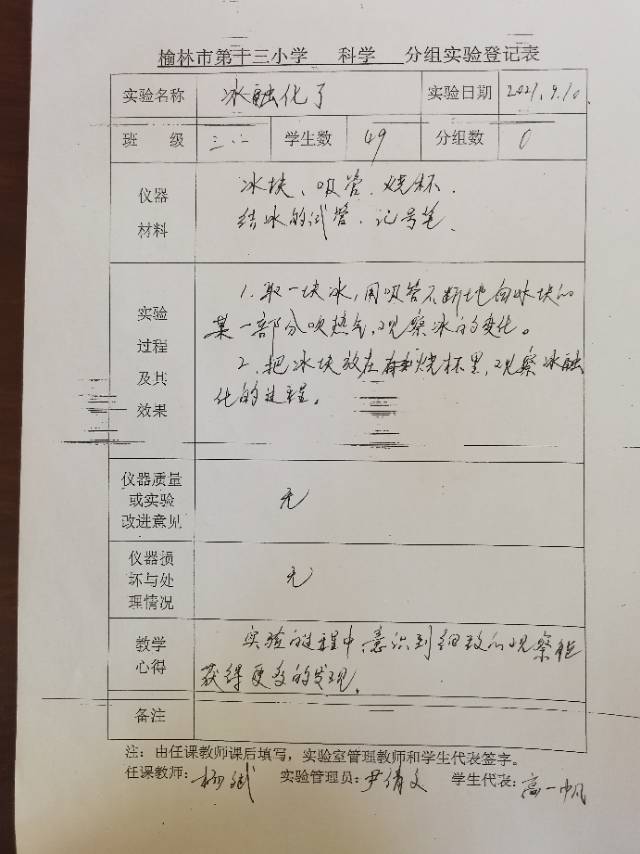 榆林市第十三小学 科学 分组实验登记表
实验名称 冰融化了 实验日期 2021.9.10.
班 级 三.二 学生数 49 分组数 0
仪器材料
冰块、吸管、烧杯、
结冰的试管、记号笔.
实验过程及其效果
1.取一块冰,用吸管不断地向冰块的
某一部分吹热气,观察冰的变化。
2.把冰块放在 烧杯里,观察冰融
化的过程。
仪器质量或实验改进意见 无
仪器损坏与处理情况 无
教学心得
实验的过程中意识到细致的观察能
获得更多的发现.
备注
注:由任课教师课后填写,实验室管理教师和学生代表签字。
任课教师:柳斌 实验管理员:尹倩文 学生代表:高一帆